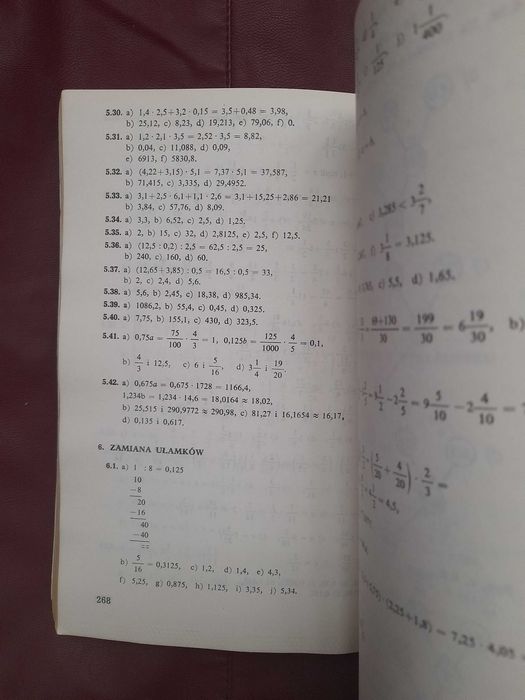 5.30. a) 1,4 · 2,5+3,2 · 0,15 = 3,5+0,48 = 3,98,
b) 25,12, c) 8,23, d) 19,213, e) 79,06, f) 0.
5.31. a) 1,2 · 2,1 · 3,5 = 2,52 · 3,5 = 8,82,
b) 0,04, c) 11,088, d) 0,09,
e) 6913, f) 5830,8.
5.32. a) (4,22+3,15) · 5,1 = 7,37 · 5,1 = 37,587,
b) 71,415, c) 3,335, d) 29,4952.
5.33. a) 3,1+2,5 · 6,1+1,1 · 2,6 = 3,1+15,25+2,86 = 21,21
b) 3,84, c) 57,76, d) 8,09.
5.34. a) 3,3, b) 6,52, c) 2,5, d) 1,25.
5.35. a) 2, b) 15, c) 32, d) 2,8125, e) 2,5, f) 12,5.
5.36. a) (12,5 : 0,2) : 2,5 = 62,5 : 2,5 = 25,
b) 240, c) 160, d) 60.
5.37. a) (12,65+3,85) : 0,5 = 16,5 : 0,5 = 33,
b) 2, c) 2,4, d) 5,6.
5.38. a) 5,6, b) 2,45, c) 18,38, d) 985,34.
5.39. a) 1086,2, b) 55,4, c) 0,45, d) 0,325.
5.40. a) 7,75, b) 155,1, c) 430, d) 323,5.
5.41. a) 0,75a = 75/100 · 4/3 = 1, 0,125b = 125/1000 · 4/5 = 0,1,
b) 4/3 i 12,5, c) 6 i 5/16, d) 3 1/4 i 19/20.
5.42. a) 0,675a = 0,675 · 1728 = 1166,4,
1,234b = 1,234 · 14,6 = 18,0164 ≈ 18,02,
b) 25,515 i 290,9772 ≈ 290,98, c) 81,27 i 16,1654 ≈ 16,17,
d) 0,135 i 0,617.
6. ZAMIANA UŁAMKÓW
6.1. a) 1 : 8 = 0,125
10
−8
20
−16
40
−40
==
b) 5/16 = 0,3125, c) 1,2, d) 1,4, e) 4,3,
f) 5,25, g) 0,875, h) 1,125, i) 3,35, j) 5,34.
268
1 1/400
1,285 < 3 2/7,
f) 3 1/8 = 3,125.
c) 5,5, d) 1,65.
= 199/30 = 6 19/30, b)
− 2 2/5 = 9 5/10 − 2 4/10 =
(5/20 + 4/20) · 2/3 =
= 4,5,
· (2,25+1,8) = 7,25 · 4,05